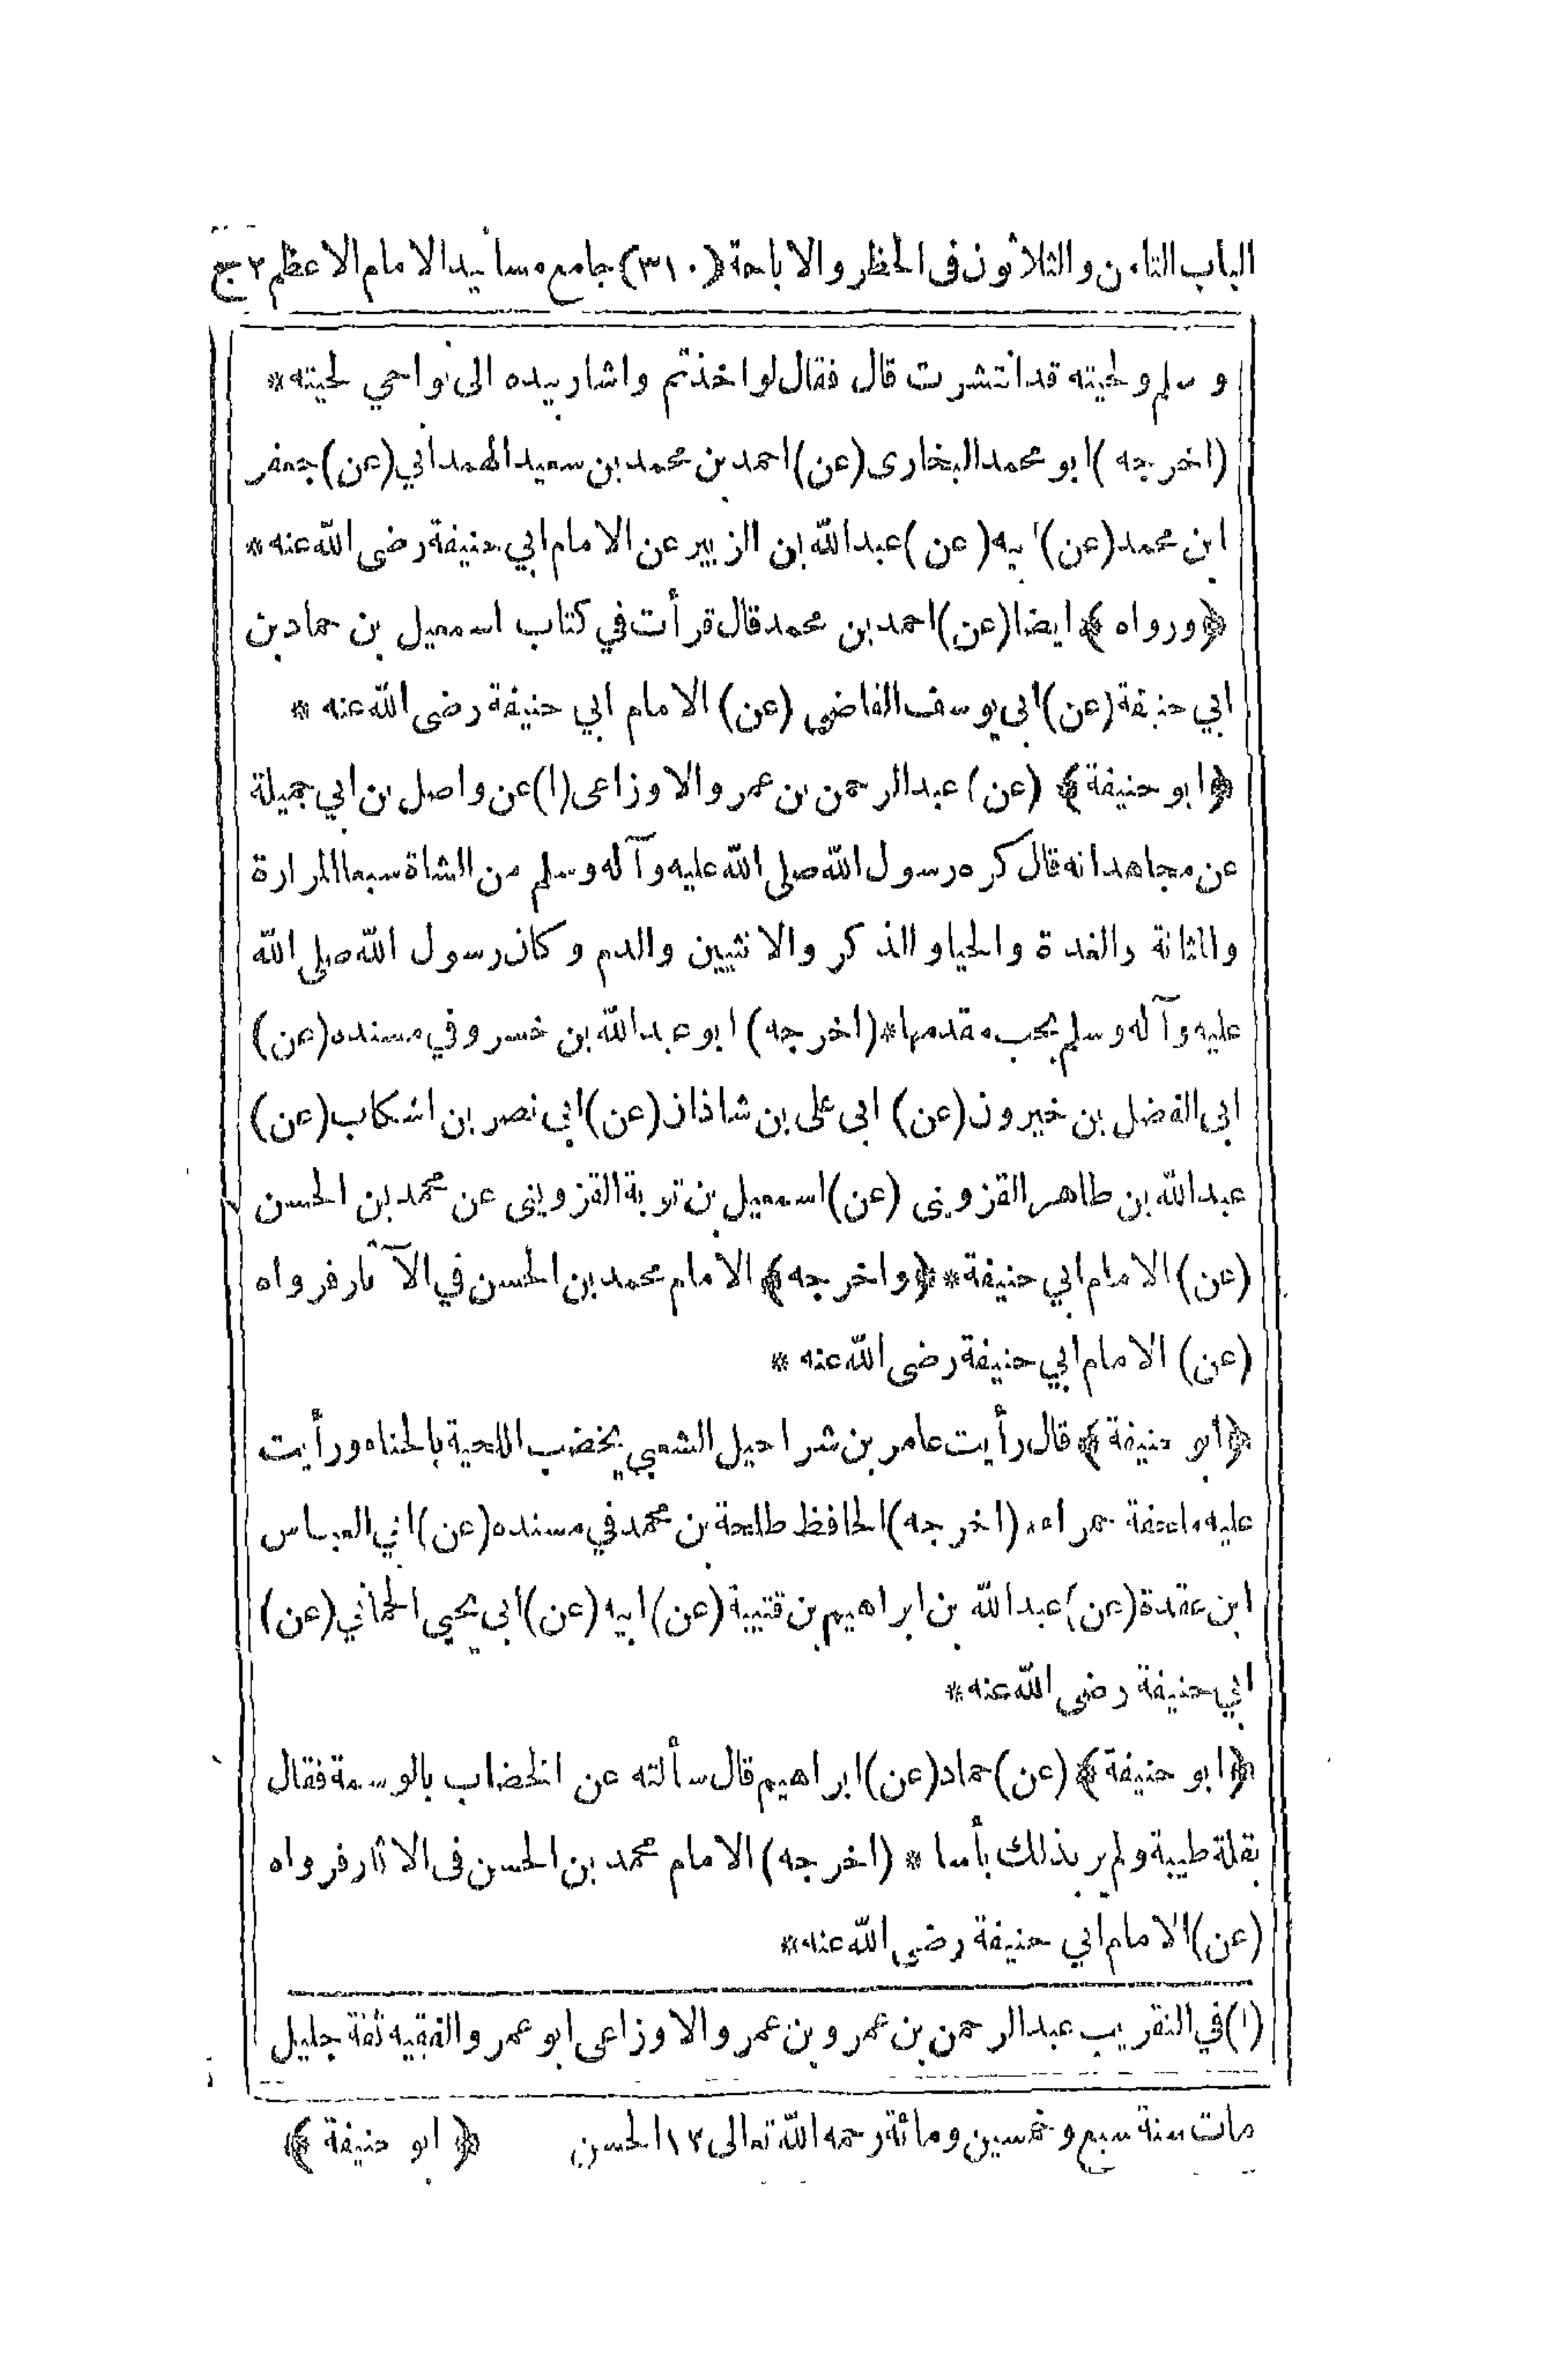 الباب الثامن والثلاثون فى الحظر والاباحة (٣١٠) جامع مسانيد الامام الاعظم ٢ج
وسلم ولحيته قد انتشرت قال فقال لو اخذتم واشار بيده الى نواحي لحيته*
(اخرجه) ابو محمد البخارى (عن) احمد بن محمد بن سعيد الهمداني (عن) جعفر
ابن محمد (عن) ابيه (عن) عبد الله بن الزبير عن الامام ابي حنيفة رضى الله عنه*
﴿ورواه﴾ ايضا (عن) احمد بن محمد قال قرأت في كتاب اسمعيل بن حماد بن
ابي حنيفة (عن) ابى يوسف القاضى (عن) الامام ابي حنيفة رضى الله عنه *
﴿ابو حنيفة﴾ (عن) عبد الرحمن بن عمرو الاوزاعى (١) عن واصل بن ابي جميلة
عن مجاهد انه قال كره رسول الله صلى الله عليه وآله وسلم من الشاة سبعا المرارة
والمثانة والغدة والحيا والذكر والانثيين والدم وكان رسول الله صلى الله
عليه وآله وسلم يحب مقدمها* (اخرجه) ابو عبد الله بن خسرو في مسنده (عن)
ابى الفضل بن خيرون (عن) ابى على بن شاذان (عن) ابي نصر بن اشكاب (عن)
عبد الله بن طاهر القزوينى (عن) اسمعيل بن توبة القزوينى عن محمد بن الحسن
(عن) الامام ابي حنيفة* ﴿واخرجه﴾ الامام محمد بن الحسن في الآثار فرواه
(عن) الامام ابي حنيفة رضى الله عنه *
﴿ابو حنيفة﴾ قال رأيت عامر بن شراحيل الشعبي يخضب اللحية بالحناء ورأيت
عليه ملحفة حمراء* (اخرجه) الحافظ طلحة بن محمد في مسنده (عن) ابي العباس
ابن عقدة (عن) عبد الله بن ابراهيم بن قتيبة (عن) ابيه (عن) ابى يحيى الحماني (عن)
ابي حنيفة رضى الله عنه*
﴿ابو حنيفة﴾ (عن) حماد (عن) ابراهيم قال سألته عن الخضاب بالوسمة فقال
بقلة طيبة ولم ير بذلك بأسا * (اخرجه) الامام محمد بن الحسن فى الاثار فرواه
(عن) الامام ابي حنيفة رضى الله عنه*
(١) في التقريب عبد الرحمن بن عمرو بن عمرو الاوزاعى ابو عمرو الفقيه ثقة جليل
مات سنة سبع وخمسين ومائة رحمه الله تعالى ١٢ الحسن ﴿ابو حنيفة﴾